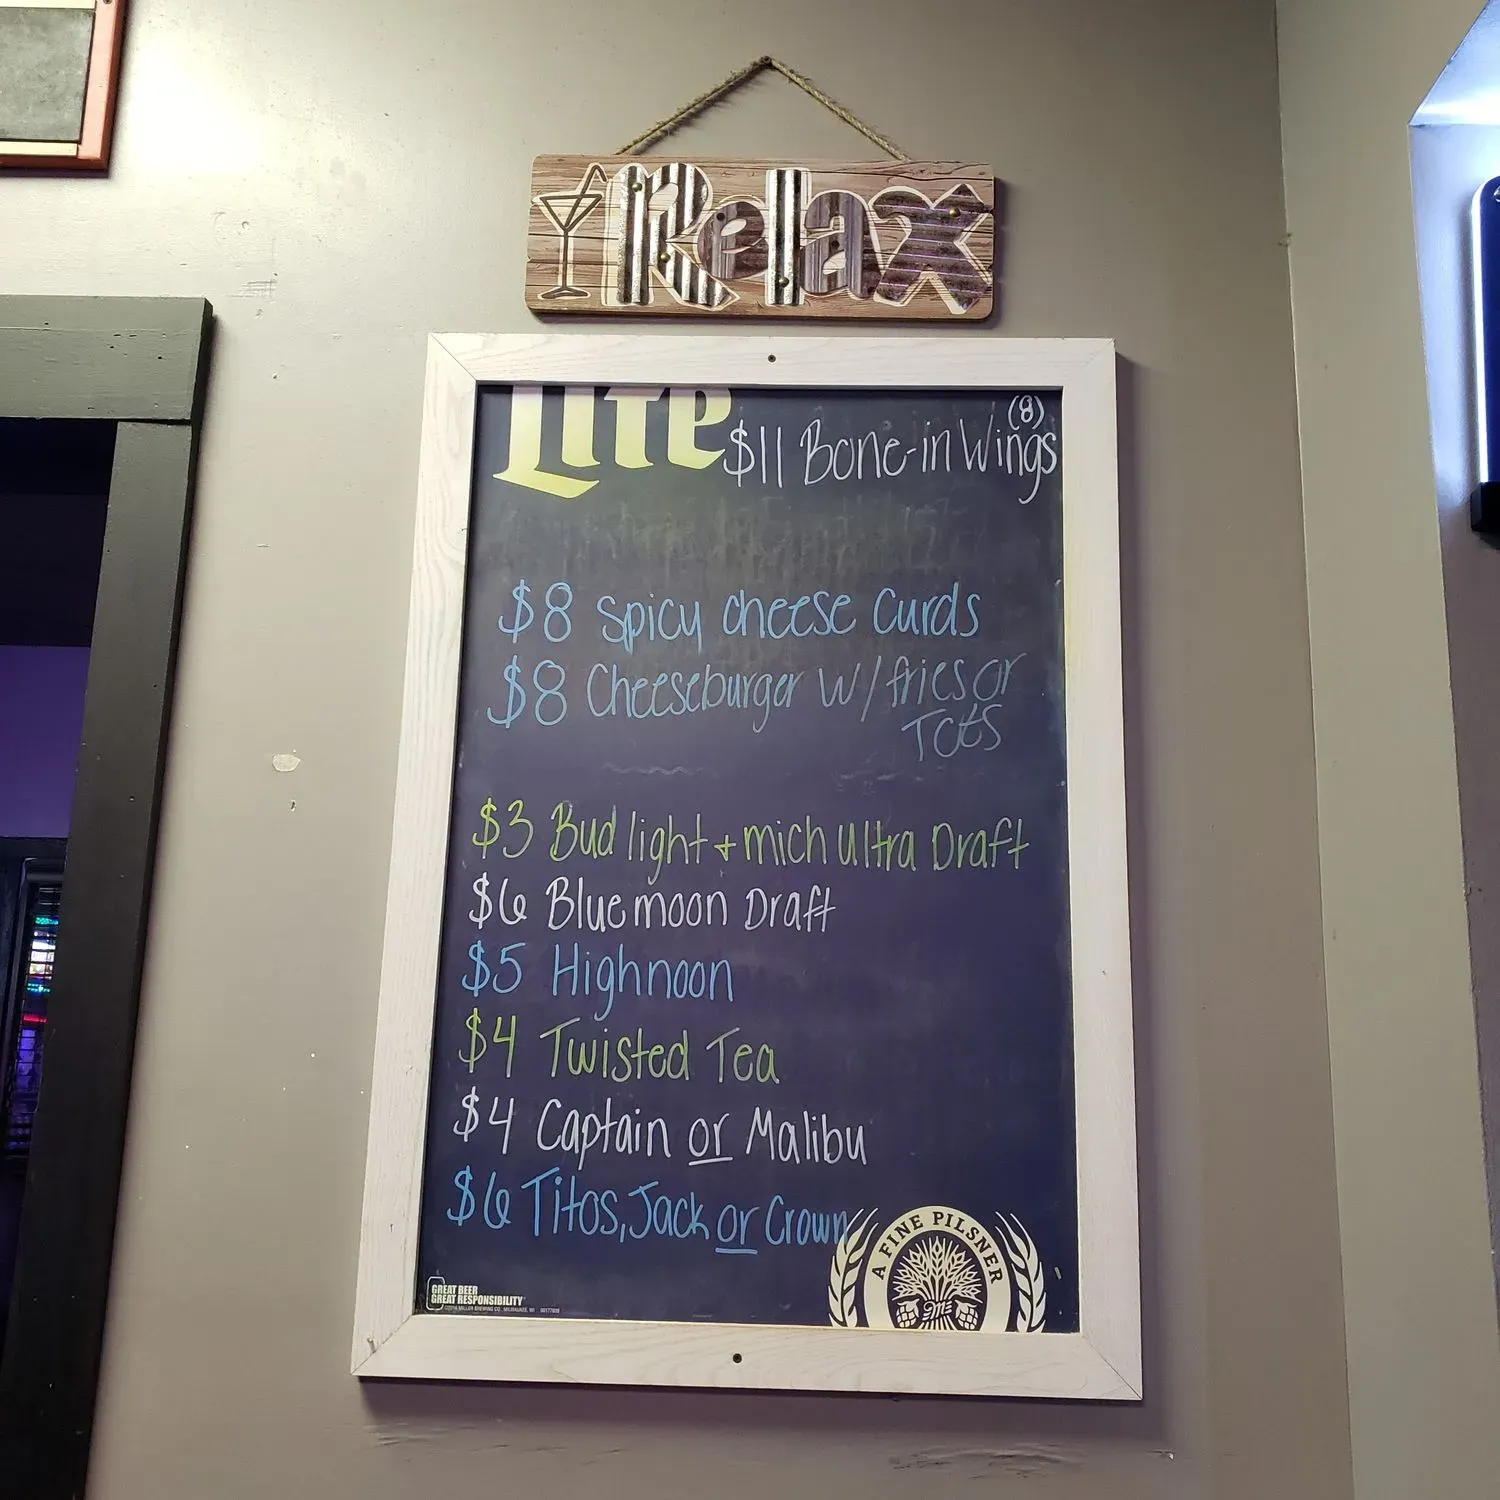 Relax
Lite
(8)
$11 Bone-in Wings
$8 Spicy cheese Curds
$8 Cheeseburger w/ fries or
TOTS
$3 Bud light + mich ultra Draft
$6 Blue moon Draft
$5 Highnoon
$4 Twisted Tea
$4 Captain or Malibu
$6 Titos, Jack or Crown
A FINE PILSNER
GREAT BEER
GREAT RESPONSIBILITY